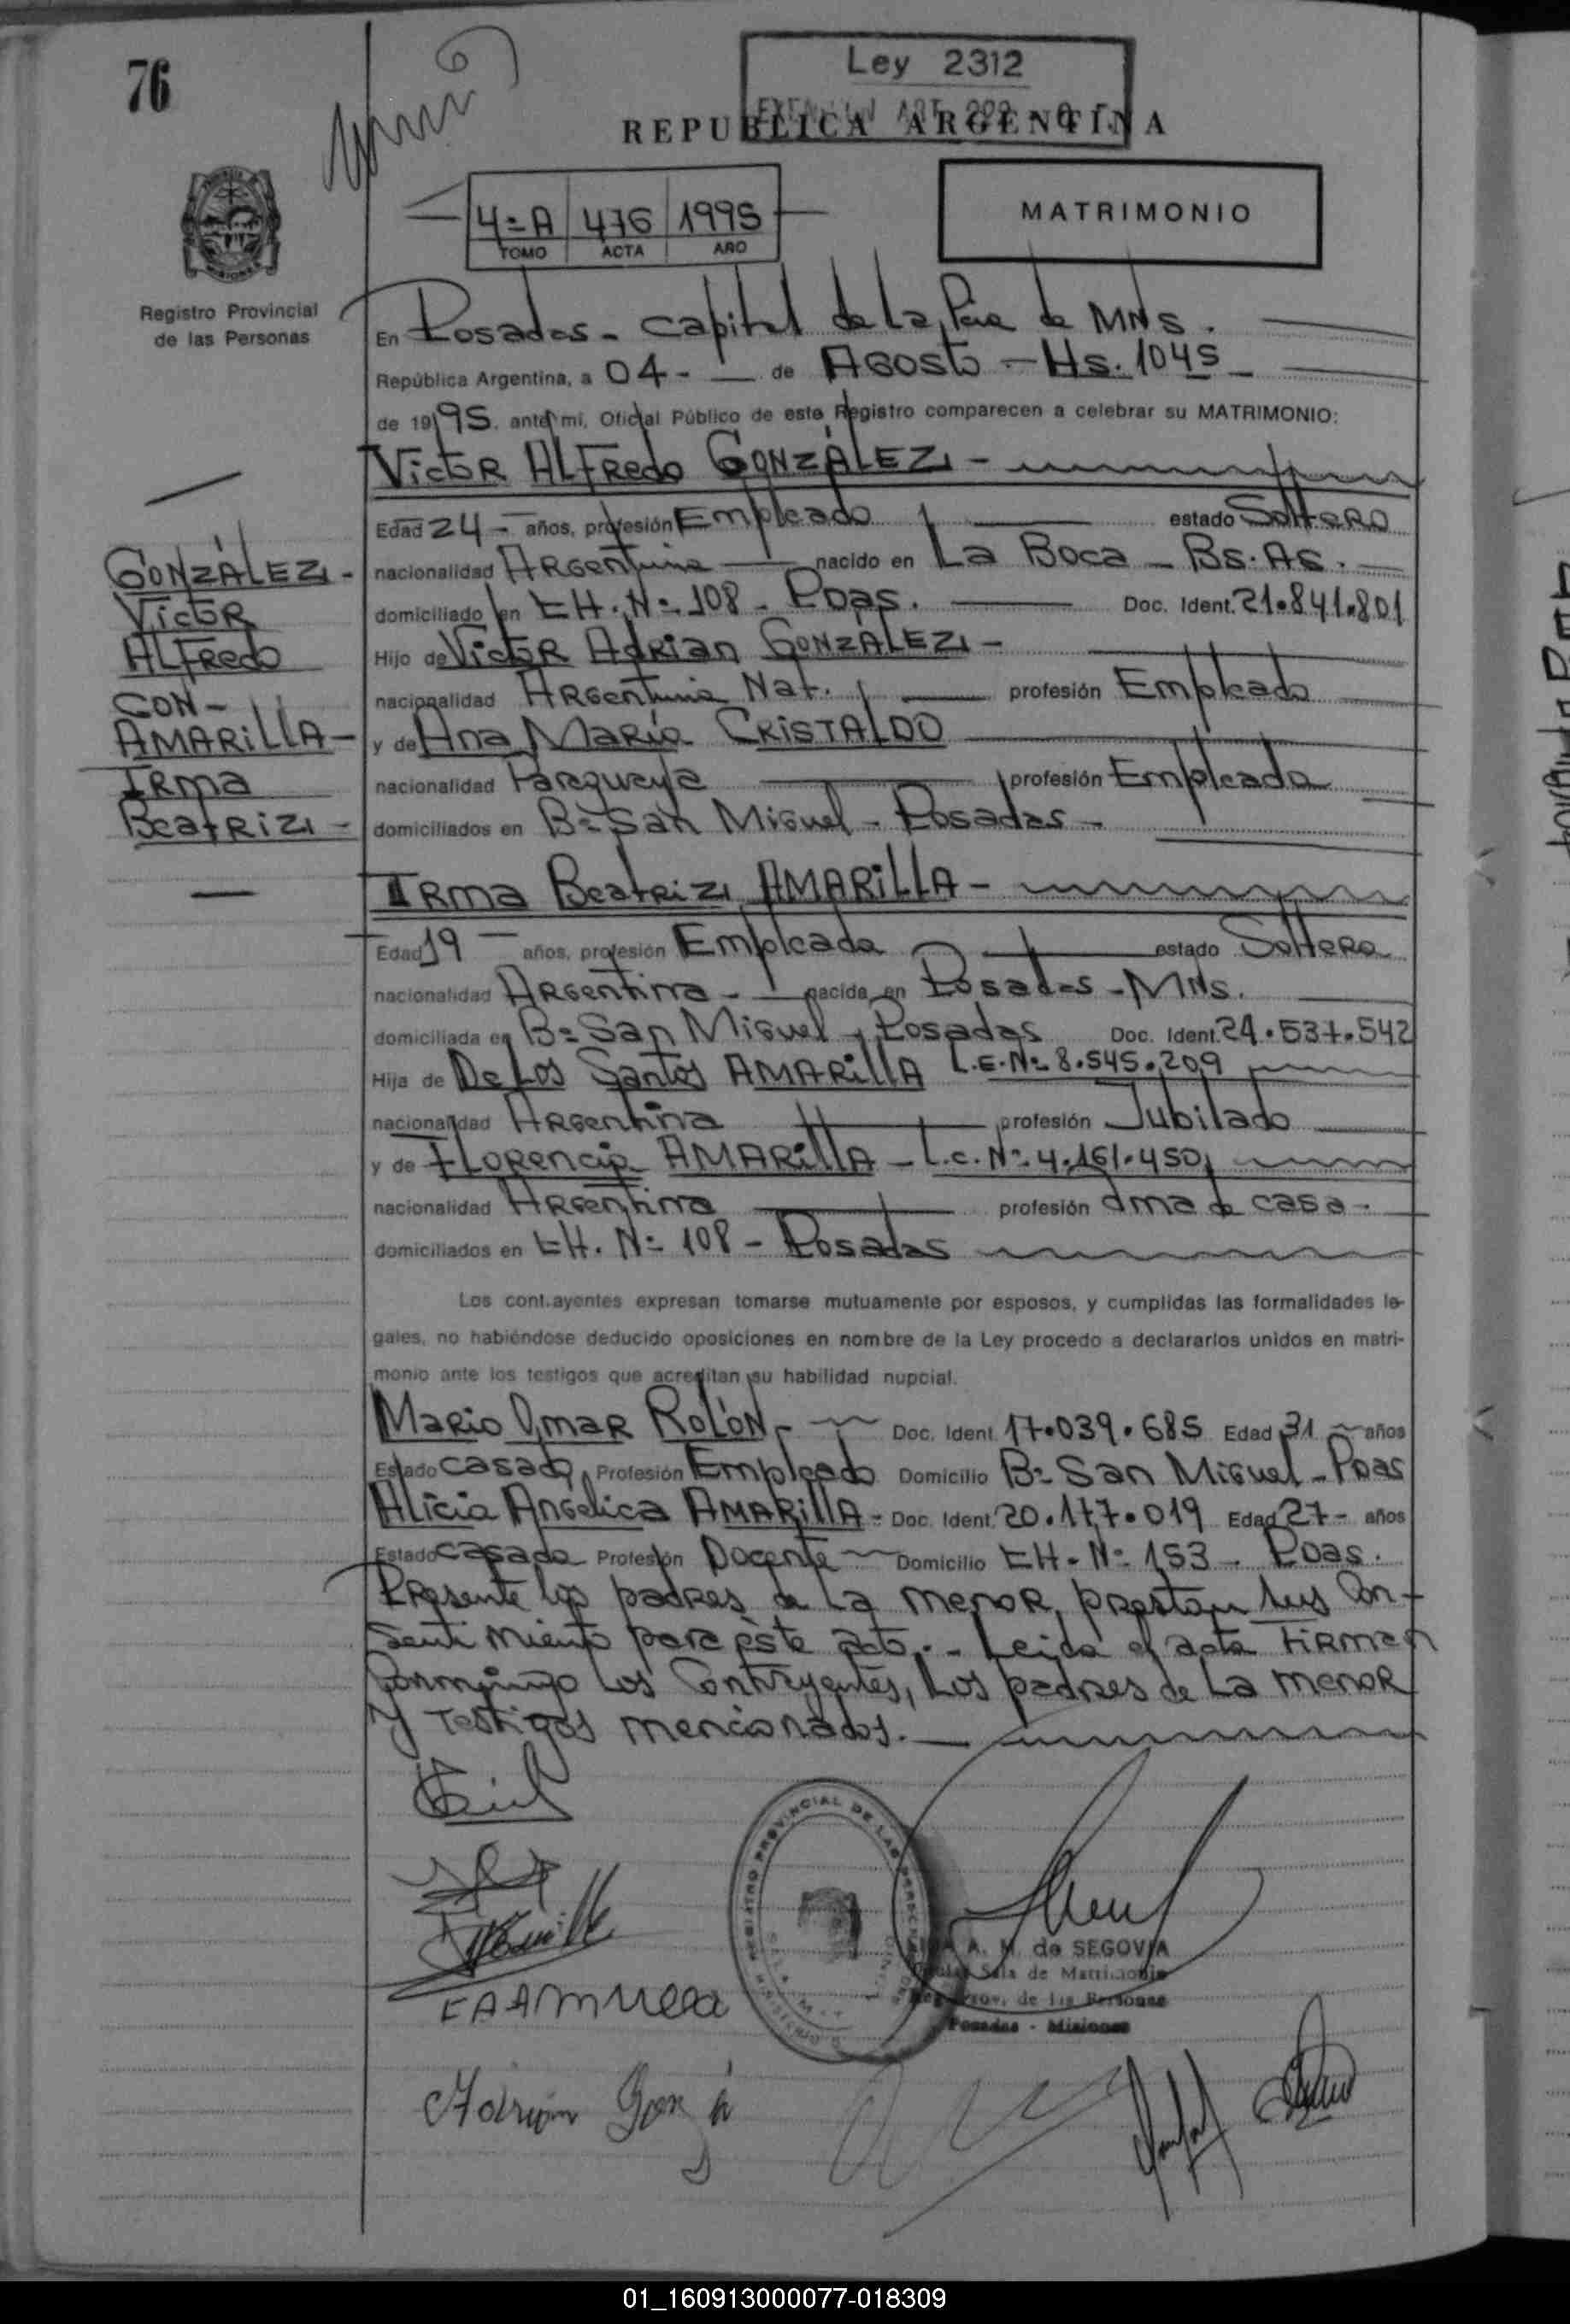 76
Ley 2312
REPUBLICA ARGENTINA
4º A 476 1995
TOMO ACTA AÑO
MATRIMONIO
Registro Provincial
de las Personas
En Posadas - Capital de La Pcia de MNS.
República Argentina, a 04 - de AGOSto - Hs. 1045
de 1995. ante mi, Oficial Público de este Registro comparecen a celebrar su MATRIMONIO:
Victor ALFredo GONZÁLEZ -
Edad 24 - años, profesión Empleado estado Soltero
nacionalidad Argentina nacido en La Boca - Bs. As.
domiciliado en CH. Nº 108 - Pdas. Doc. Ident. 21.841.801
Hijo de Victor Adrian GONZÁLEZ -
nacionalidad Argentina Nat. profesión Empleado
y de Ana María CRISTALDO
nacionalidad Paraguaya profesión Empleada
domiciliados en Bº San Miguel - Posadas -
GONZÁLEZ -
Victor
ALFredo
CON -
AMARILLA -
Irma
Beatriz -
Irma Beatriz AMARILLA -
Edad 19 - años, profesión Empleada estado Soltera
nacionalidad Argentina - nacida en Posadas - MNS.
domiciliada en Bº San Miguel - Posadas Doc. Ident. 24.537.542
Hija de De Los Santos AMARILLA L.E. Nº 8.545.209
nacionalidad Argentina profesión Jubilado
y de Florencia AMARILLA - L.C. Nº 4.161.450
nacionalidad Argentina profesión Ama de casa -
domiciliados en CH. Nº 108 - Posadas
Los contrayentes expresan tomarse mutuamente por esposos, y cumplidas las formalidades le-
gales, no habiéndose deducido oposiciones en nombre de la Ley procedo a declararlos unidos en matri-
monio ante los testigos que acreditan su habilidad nupcial.
Mario Omar ROLÓN - Doc. Ident. 17.039.685 Edad 31 años
Estado casado Profesión Empleado Domicilio Bº San Miguel - Pdas
Alicia Angélica AMARILLA - Doc. Ident. 20.177.019 Edad 27 - años
Estado casada Profesión Docente Domicilio CH. Nº 153 - Pdas.
Presente los padres de La menor, prestan sus Con-
sentimiento para éste acto. - Leida el acta Firman
conmigo Los Contrayentes, Los padres de La menor
y testigos mencionados.
REGISTRO PROVINCIAL DE LAS PERSONAS
A. M. de SEGOVIA
Sala de Matrimonio
Prov. de las Personas
Posadas - Misiones
Adrian
01_160913000077-018309